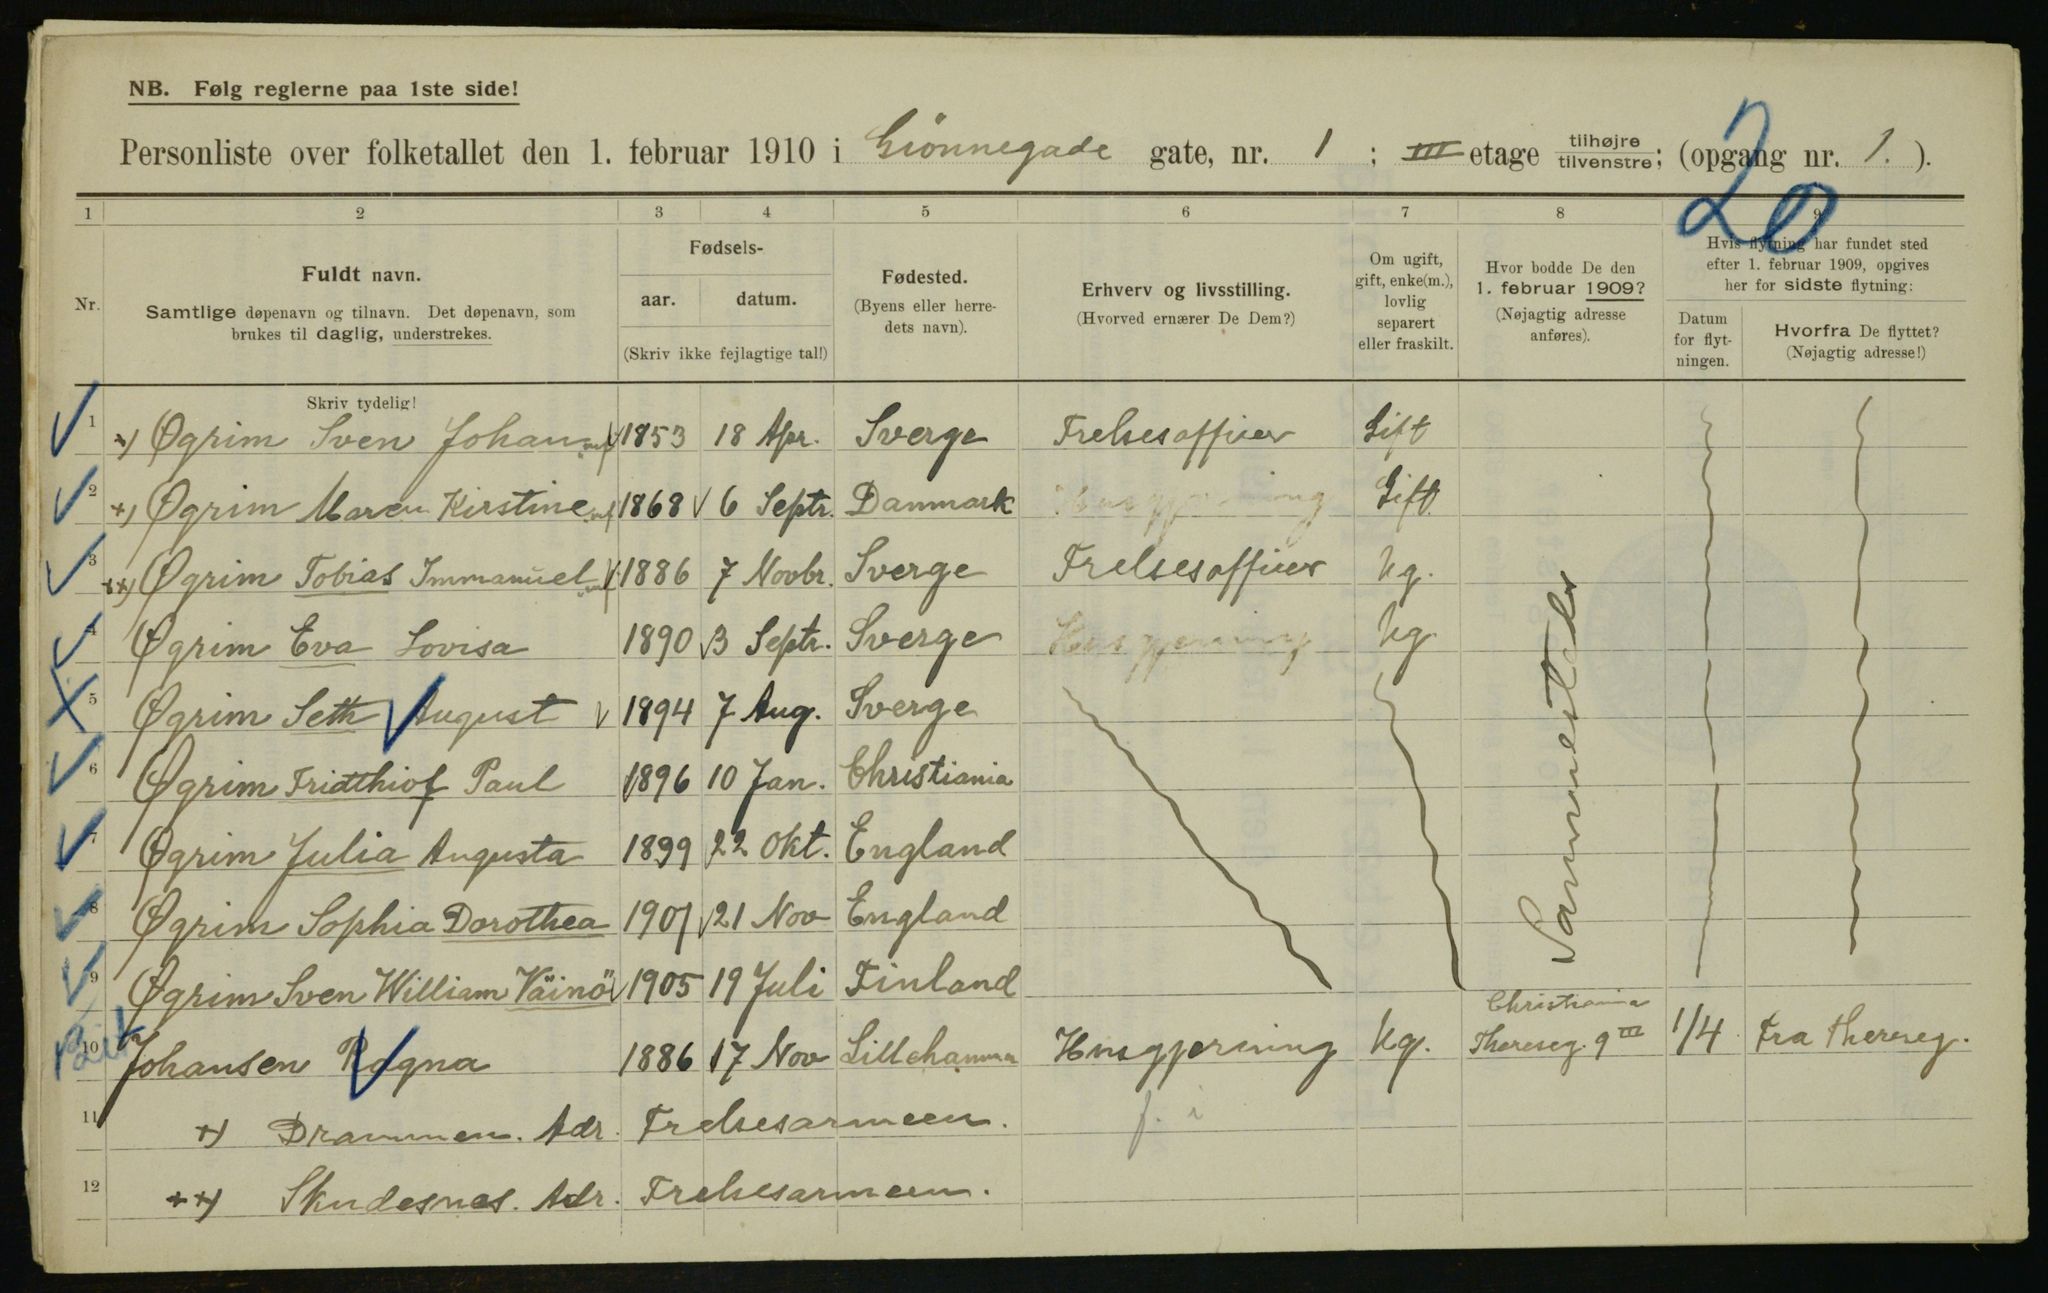 NB. Følg reglerne paa 1ste side!
20
Personliste over folketallet den 1. februar 1910 i Grönnegade gate, nr. 1 ; III etage tilhøjre tilvenstre; (opgang nr. 1. ).
1 2 3 4 5 6 7 8 9
Nr.
Fuldt navn.
Samtlige døpenavn og tilnavn. Det døpenavn, som
brukes til daglig, understrekes.
Fødsels-
aar. datum.
(Skriv ikke fejlagtige tal!)
Fødested.
(Byens eller herre-
dets navn).
Erhverv og livsstilling.
(Hvorved ernærer De Dem?)
Om ugift,
gift, enke(m.),
lovlig
separert
eller fraskilt.
Hvor bodde De den
1. februar 1909?
(Nøjagtig adresse
anføres).
Hvis flytning har fundet sted
efter 1. februar 1909, opgives
her for sidste flytning:
Datum
for flyt-
ningen.
Hvorfra De flyttet?
(Nøjagtig adresse!)
Skriv tydelig!
1 +) Øgrim Sven Johan 1853 18 Apr. Sverge Frelsesofficer Gift
2 +) Øgrim Maren Kirstine 1868 6 Septr. Danmark Husgjerning Gift
3 ++) Øgrim Tobias Immanuel 1886 7 Novbr. Sverge Frelsesofficer Ug.
4 Øgrim Eva Lovisa 1890 3 Septr. Sverge Husgjerning Ug
5 Øgrim Seth August 1894 7 Aug. Sverge
6 Øgrim Fridthiof Paul 1896 10 Jan. Christiania
7 Øgrim Julia Augusta 1899 22 Okt. England
8 Øgrim Sophia Dorothea 1901 21 Nov England
9 Øgrim Sven William Väinö 1905 19 Juli Finland
Sammesteds
10 Johansen Ragna 1886 17 Nov Lillehammer Husgjerning Ug. Christiania Thereseg. 9 III 1/4 Fra Thereseg.
11 +) Drammen. Adr. Frelsesarmeen. f. i
12 ++) Skudesnes. Adr. Frelsesarmeen.